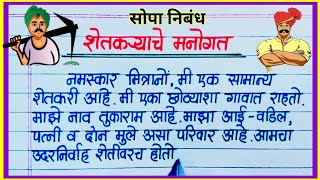 सोपा निबंध
शेतकऱ्याचे मनोगत
नमस्कार मित्रानों, मी एक सामान्य
शेतकरी आहे. मी एका छोट्याशा गावात राहतो.
माझे नाव तुकाराम आहे. माझा आई-वडिल,
पत्नी व दोन मुले असा परिवार आहे. आमचा
उदरनिर्वाह शेतीवरच होतो